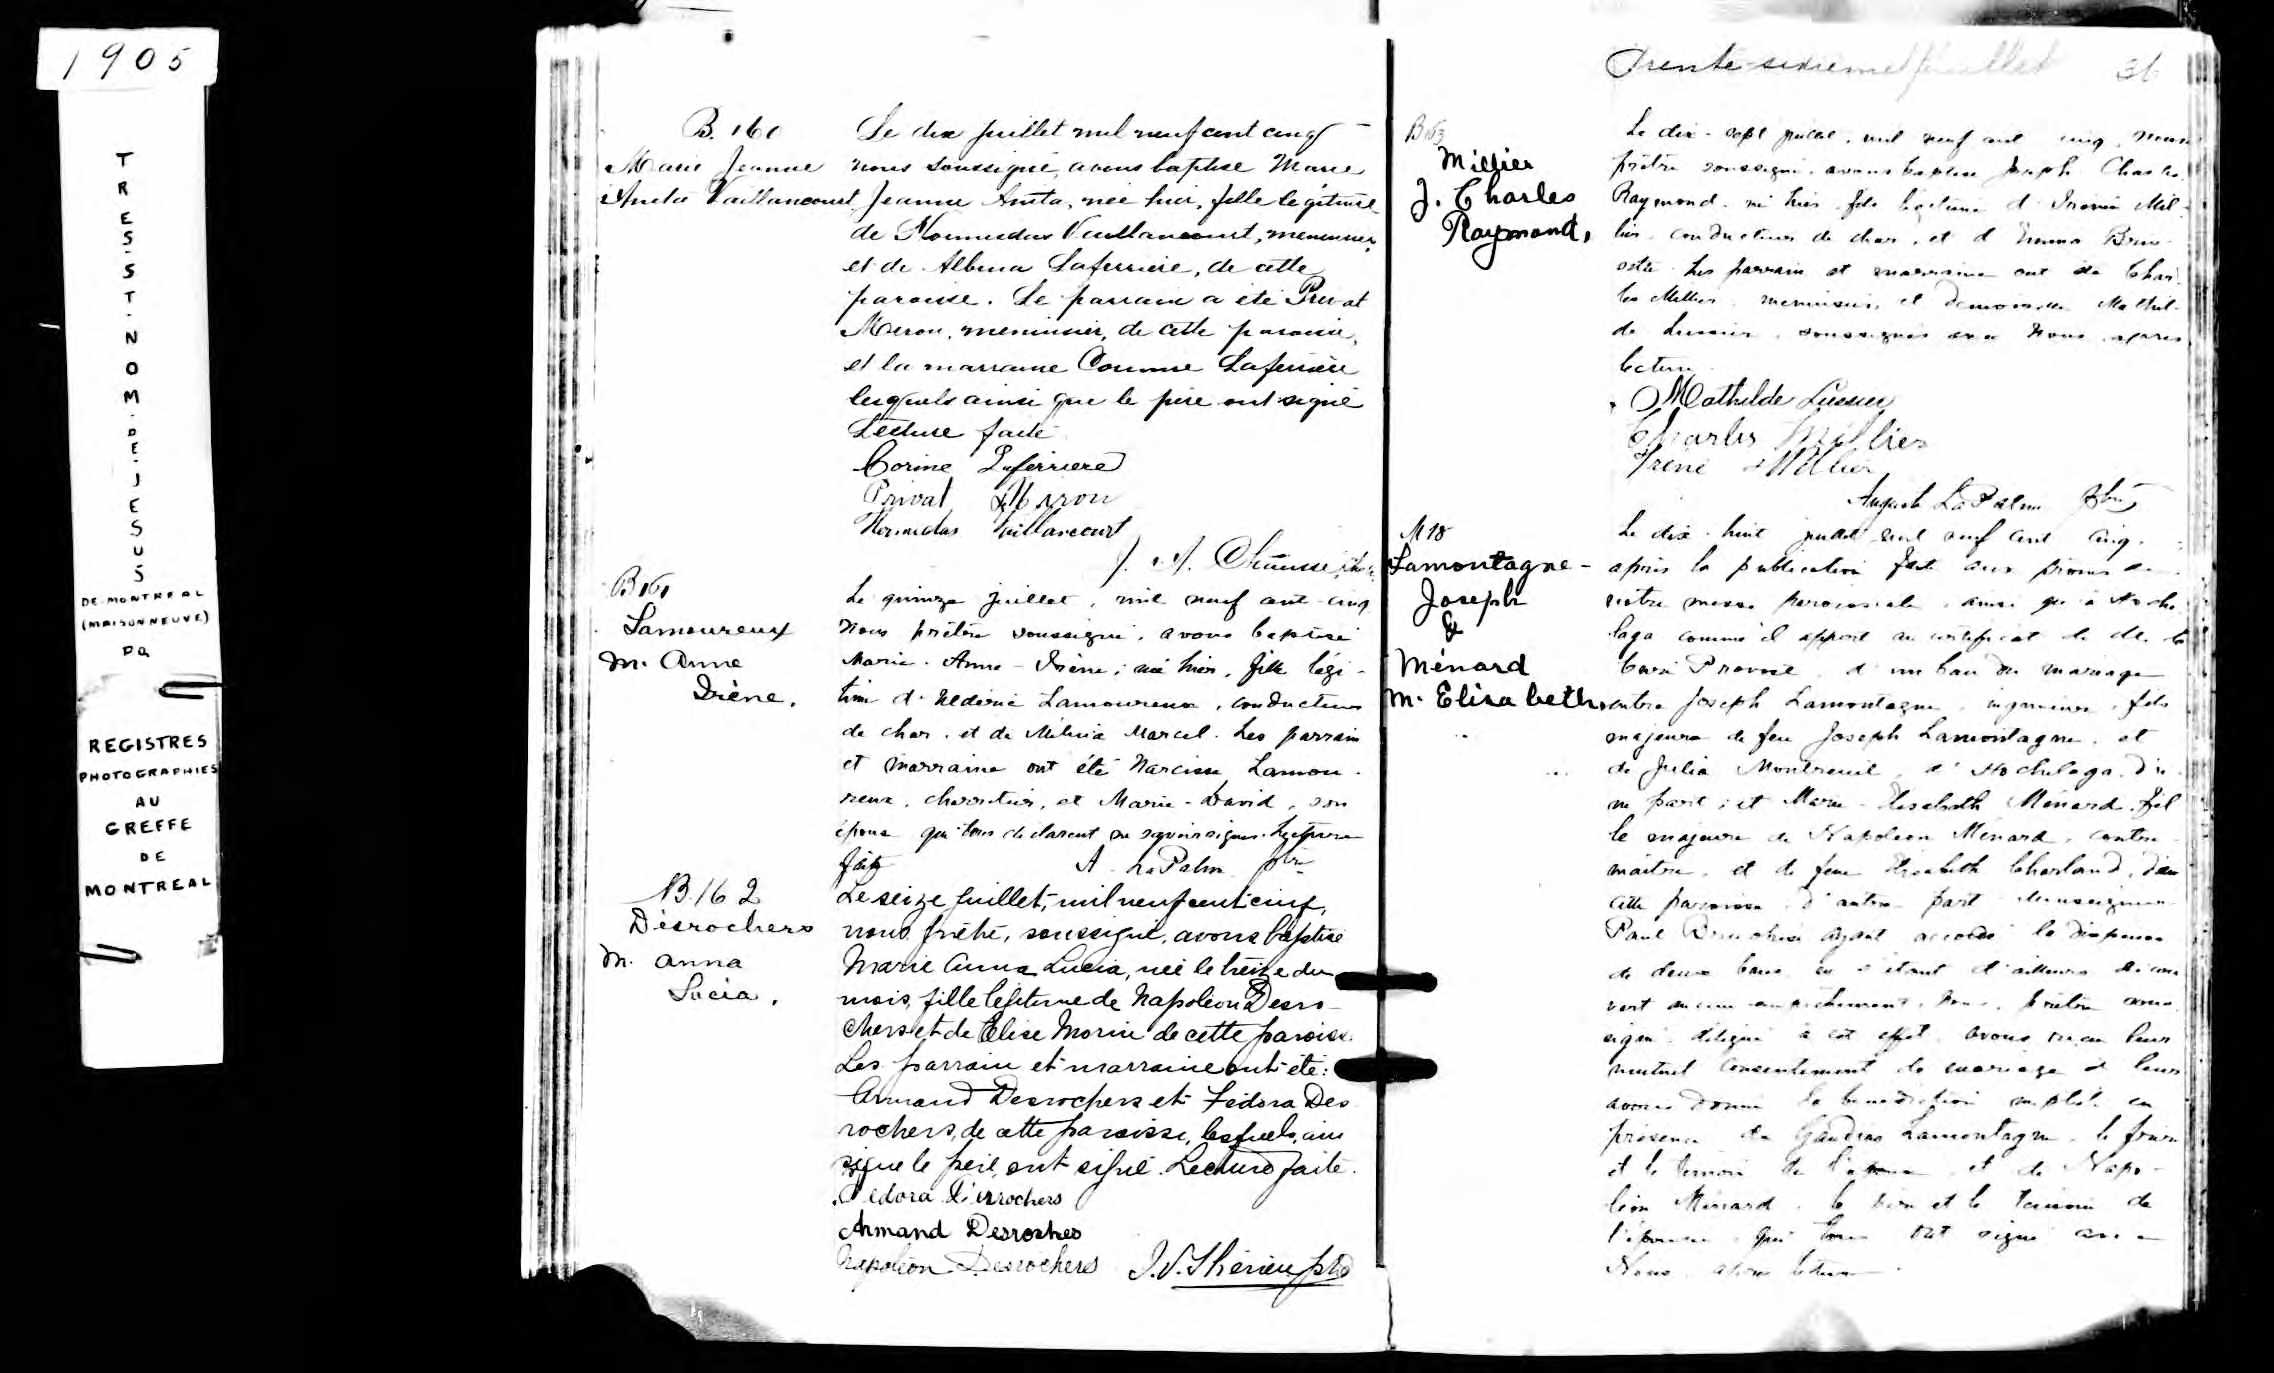 1905
TRES ST. NOM DE JESUS
DE MONTREAL
(MAISONNEUVE)
REGISTRES
PHOTOGRAPHIES
AU
GREFFE
DE
MONTREAL
B. 160
Marie Jeanne
Anita Vaillancourt
Le dix juillet mil neuf cent cinq
nous soussigné, avons baptisé Marie
Jeanne Anita, née hier, fille légitime
de Hormisdas Vaillancourt, menuisier,
et de Albina Laferrière, de cette
paroisse. Le parrain a été Privat
Miron, menuisier, de cette paroisse,
et la marraine Corinne Laferrière
lesquels ainsi que le père ont signé
Lecture faite
Corine Laferriere
Privat Miron
Hormidas Vaillancourt
J. A.
B 161
Lamoureux
M. Anne
Irène.
Le quinze juillet, mil neuf cent cinq
Nous prêtre soussigné, avons baptisé
Marie-Anne-Irène, née hier, fille légi-
time d' Lamoureux, conducteur
de char, et de Marcel. Les parrain
et marraine ont été Narcisse Lamou-
reux, charretier, et Marie-David, son
épouse qui tous déclarent ne savoir signer. Lecture
faite A. LaPalm ptre
B. 162
Desrochers
M. Anna
Lucia.
Le seize juillet, mil neuf cent cinq,
nous prêtre, soussigné, avons baptisé
Marie Anna Lucia, née le treize du
mois, fille légitime de Napoléon Desro-
chers et de Elise Morin de cette paroisse.
Les parrain et marraine ont été:
Armand Desrochers et Fédora Des
rochers, de cette paroisse, lesquels, ain
si que le père, ont signé. Lecture faite.
Fedora Desrochers
Armand Desroches
Napoléon Desrochers
Trente-sixieme feuillet 36
B 163
Millier
J. Charles
Raymond,
Le dix-sept juillet, mil neuf cent cinq, nous
prêtre soussigné, avons baptisé Joseph Charles
Raymond, né hier, fils légitime d' Mil-
lier, conducteur de char, et d'Emma
Les parrain et marraine ont été Char-
les Millier, menuisier, et demoiselle Mathil-
de Lussier, soussignés avec Nous après
lecture.
Mathilde Lussier
Charles Millier
Iréné Millier
LaPalm Ptre
M 18
Lamontagne -
Joseph
&
Ménard
M. Elisabeth,
Le dix-huit juillet mil neuf cent cinq,
après la publication faite aux prônes de
notre messe paroissiale, ainsi qu'à Hoche
laga comme il appert au certificat de
d'un ban de mariage
entre Joseph Lamontagne, ingénieur, fils
majeur de feu Joseph Lamontagne, et
de Julia Montreuil, d'Hochelaga, d'u
ne part; et Marie-Elisabeth Ménard, fil
le majeure de Napoléon Ménard, contre-
maître, et de feue Elisabeth Charland, de
cette paroisse d'autre part. Monseigneur
Paul Bruchési ayant accordé la dispense
de deux bans, ne s'étant d'ailleurs décou
vert aucun empêchement, Nous, prêtre sous
signé délégué à cet effet, avons reçu leur
mutuel consentement de mariage et leur
avons donné la bénédiction nuptiale en
présence de Lamontagne, le frère
et le témoin de l'époux, et de Napo-
léon Ménard, le père et le témoin de
l'épouse, qui tous ont signé avec
Nous après lecture.